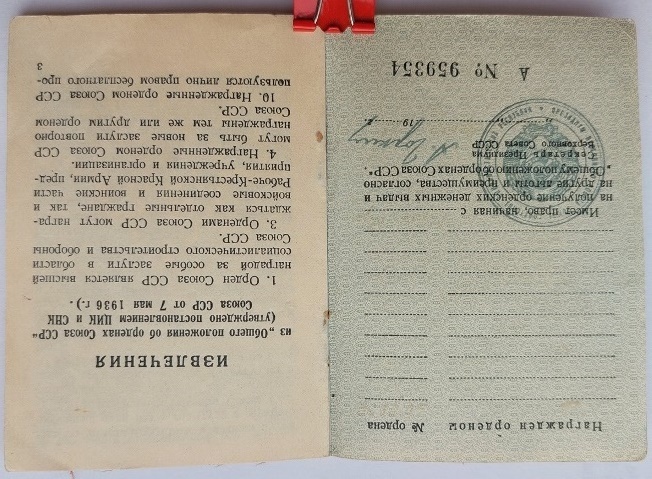 Награжден орденом № ордена
Имеет право, начиная с
на получение орденских денежных выдач и
на другие льготы и преимущества, согласно
„Общему положению об орденах Союза ССР".
Секретарь Президиума
Верховного Совета СССР
А Горкин
„ " 19 г.
А № 959354
ИЗВЛЕЧЕНИЯ
из „Общего положения об орденах Союза ССР"
(утверждено постановлением ЦИК и СНК
Союза ССР от 7 мая 1936 г.).
1. Орден Союза ССР является высшей
наградой за особые заслуги в области
социалистического строительства и обороны
Союза ССР.
3. Орденами Союза ССР могут награ-
ждаться как отдельные граждане, так и
войсковые соединения и воинские части
Рабоче-Крестьянской Красной Армии, пред-
приятия, учреждения и организации.
4. Награжденные орденом Союза ССР
могут быть за новые заслуги повторно
награждены тем же или другим орденом
Союза ССР.
10. Награжденные орденом Союза ССР
пользуются лично правом бесплатного про-
3